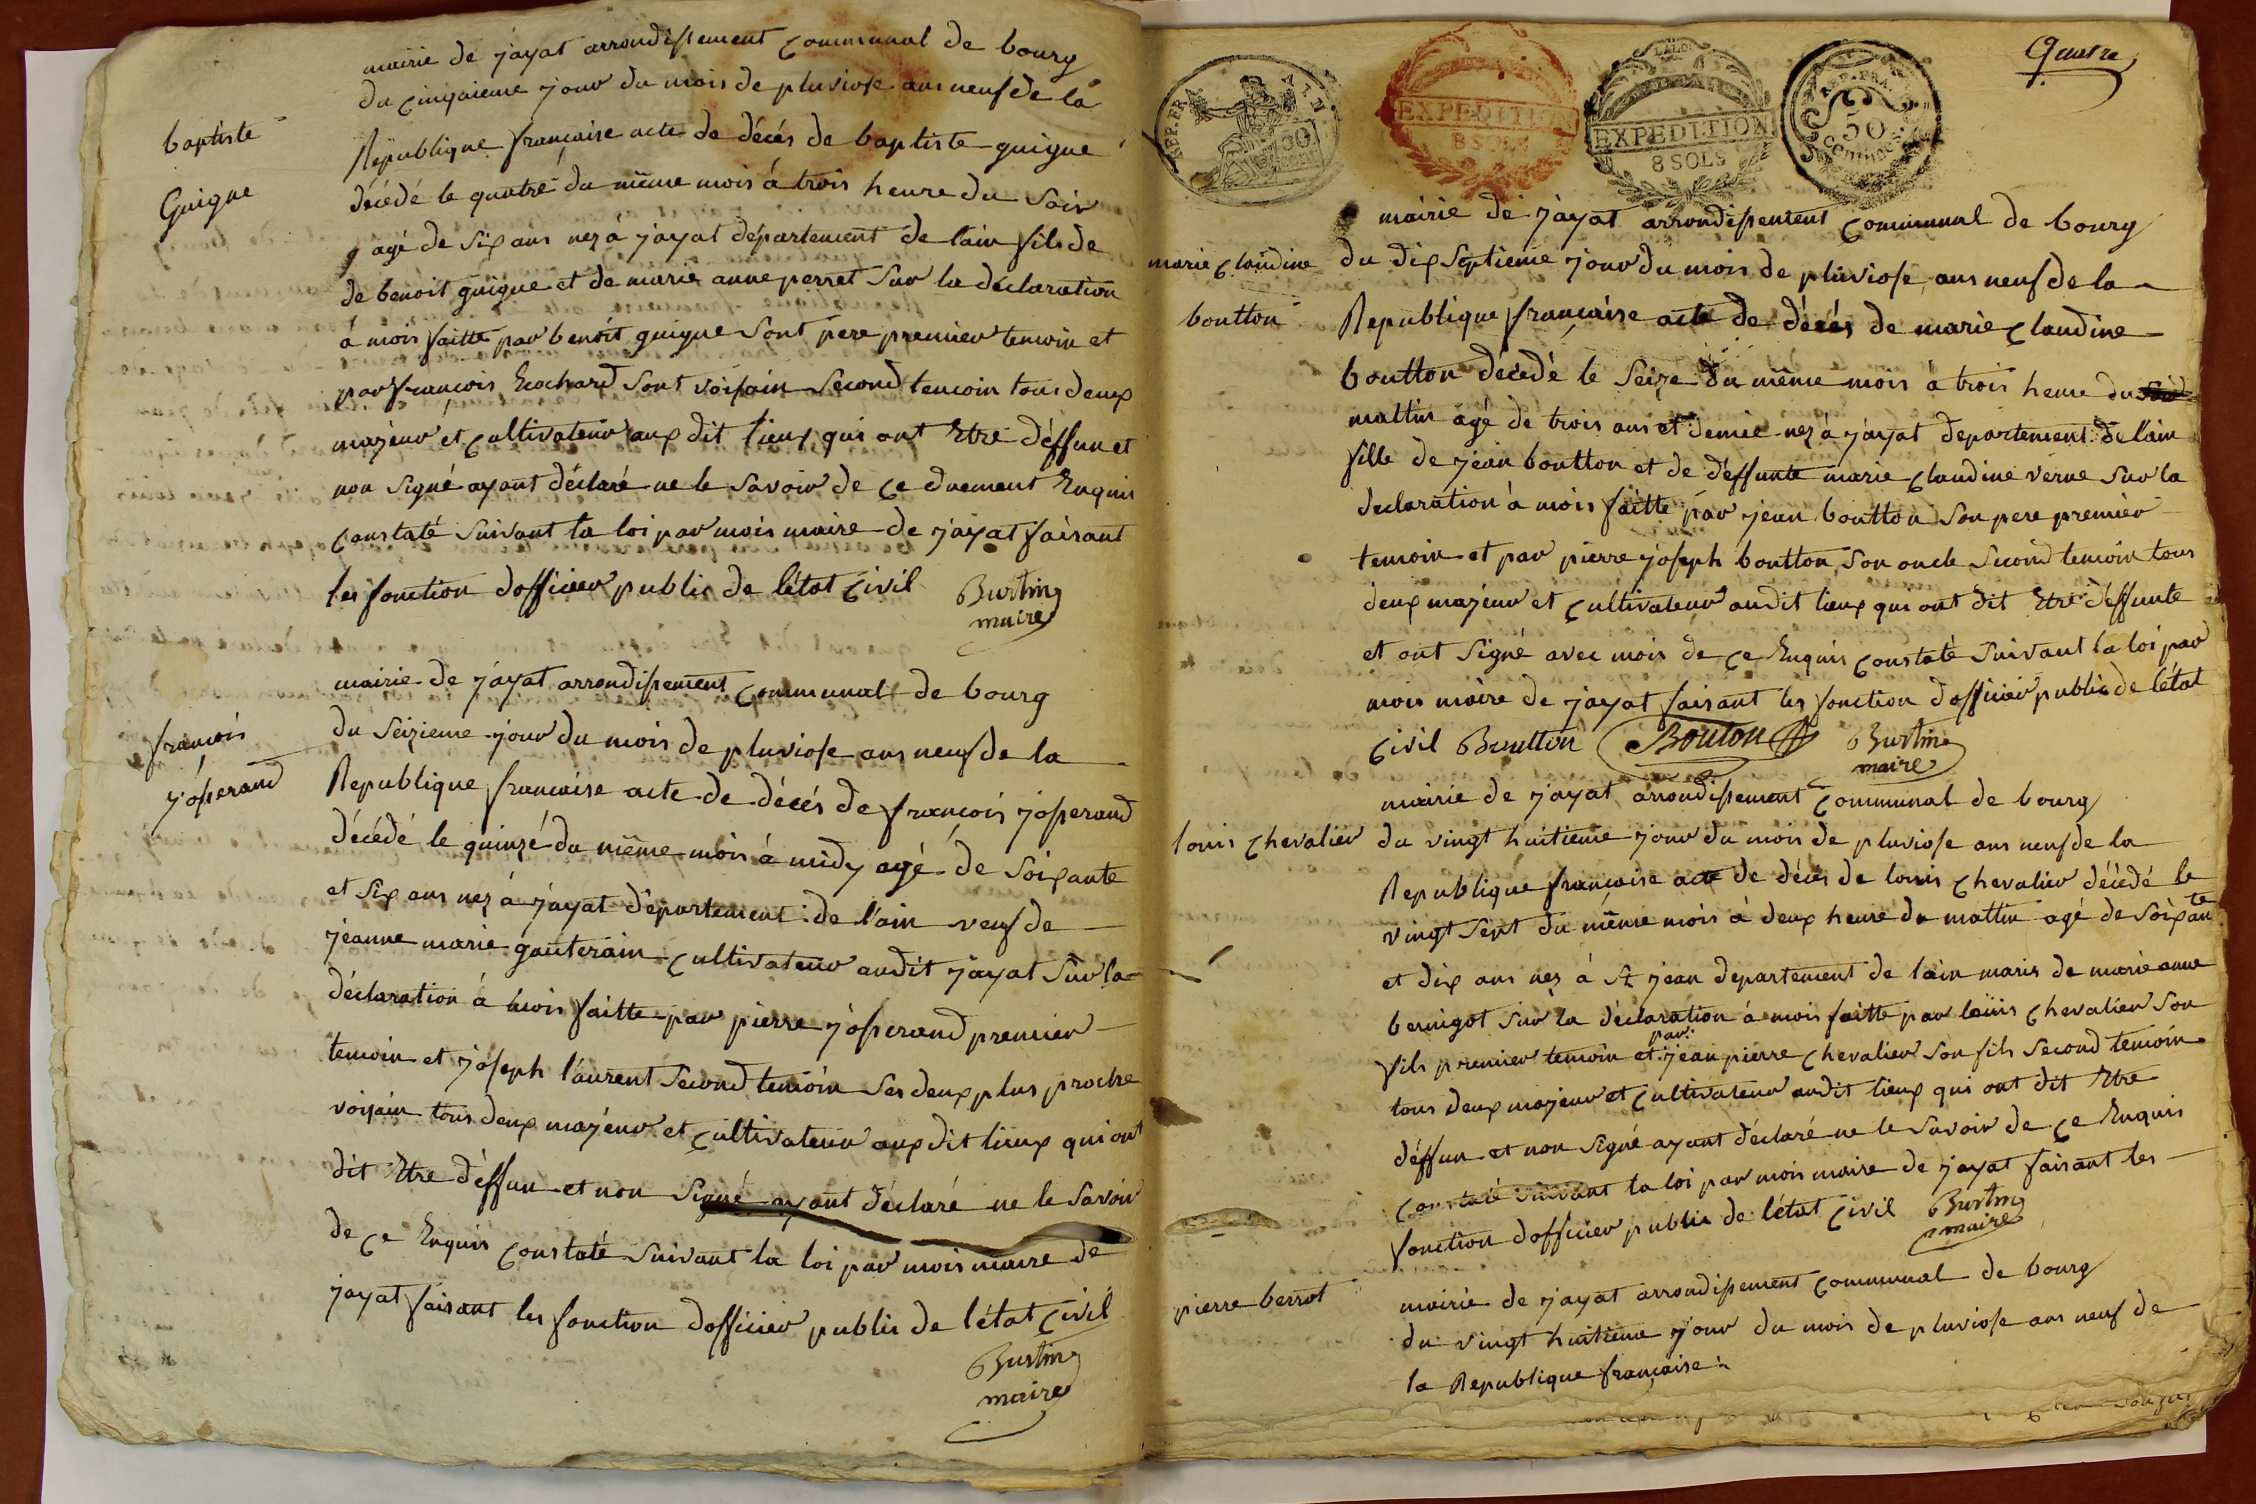 mairie de jayat arrondissement communal de bourg
du cinqieme jour du mois de pluviose ans neuf de la
baptiste
Guigue
Republique francaise acte de décés de baptiste guigue
décédé le quatre du même mois á trois heure du Soir
agé de six ans nez á jayat département de lain fils de
de benoit guigue et de marie anne perret Sur la déclaration
á mois faitte par benoit guigue Sont pere premier temoin et
par francois Ecochard Sont voisain Second temoin tous deux
majeur et cultivateur aux dit lieux qui ont Etre déffun et
non Signé ayant déclaré ne le Savoir de ce duement Enquis
constaté Suivant la loi par mois maire de jayat faisant
les fonction dofficier public de létat civil
Burtin
maire
mairie de jayat arrondissement communal de bourg
francois
josserand
du Seizieme jour du mois de pluviose ans neuf de la
Republique francaise acte de décés de francois josserand
décédé le quinze du même mois á midy agé de Soixante
et Six ans nez á jayat département de lain veuf de
jeanne marie gauterain cultivateur audit jayat Sur la
déclaration á mois faitte par pierre josserand premier
temoin et joseph laurent Second temoin Ses deux plus proche
voisain tous deux majeur et cultivateur aux dit lieux qui ont
dit Etre déffun et non Signé ayant déclaré ne le Savoir
de ce Enquis constaté Suivant la loi par mois maire de
jayat faisant les fonction dofficier public de létat civil
Burtin
maire
Quatre
REP. FRA.
50
EXPEDITION
8 SOLS
LA LOI
EXPEDITION
8 SOLS
REP. FRA.
50
centimes
mairie de jayat arrondissement communal de bourg
marie claudine
boutton
du dix Septieme jour du mois de pluviose ans neuf de la
Republique francaise acte de décés de marie claudine
boutton décedé le Seize du même mois á trois heure du
mattin agé de trois ans et demie nez á jayat departement de lain
fille de jean boutton et de déffunte marie claudine verne Sur la
declaration á mois faitte par jean boutton Son pere premier
temoin et par pierre joseph boutton Son oncle Second temoin tous
deux majeur et cultivateur audit lieux qui ont dit Etre déffunte
et ont Signé avec mois de ce Enquis constaté Suivant la loi par
mois maire de jayat faisant les fonction dofficier public de létat
civil Boutton Bouton Burtin
maire
mairie de jayat arrondissement communal de bourg
louis chevalier
du vingt huitieme jour du mois de pluviose ans neuf de la
Republique francaise acte de décés de louis chevalier décédé le
vingt Sept du même mois á deux heure du mattin agé de Soixante
et dix ans nez á St jean departement de lain maris de marie anne
beruigot Sur la déclaration á mois faitte par louis chevalier Son
fils premier temoin et par jean pierre chevalier Son fils Second temoin
tous deux majeur et cultivateur audit lieux qui ont dit Etre
déffun et non Signé ayant déclaré ne le Savoir de ce Enquis
constaté Suivant la loi par mois maire de jayat faisant les
fonction dofficier public de létat civil Burtin
maire
pierre berrot
mairie de jayat arrondissement communal de bourg
du vingt huitieme jour du mois de pluviose ans neuf de
la Republique francaise